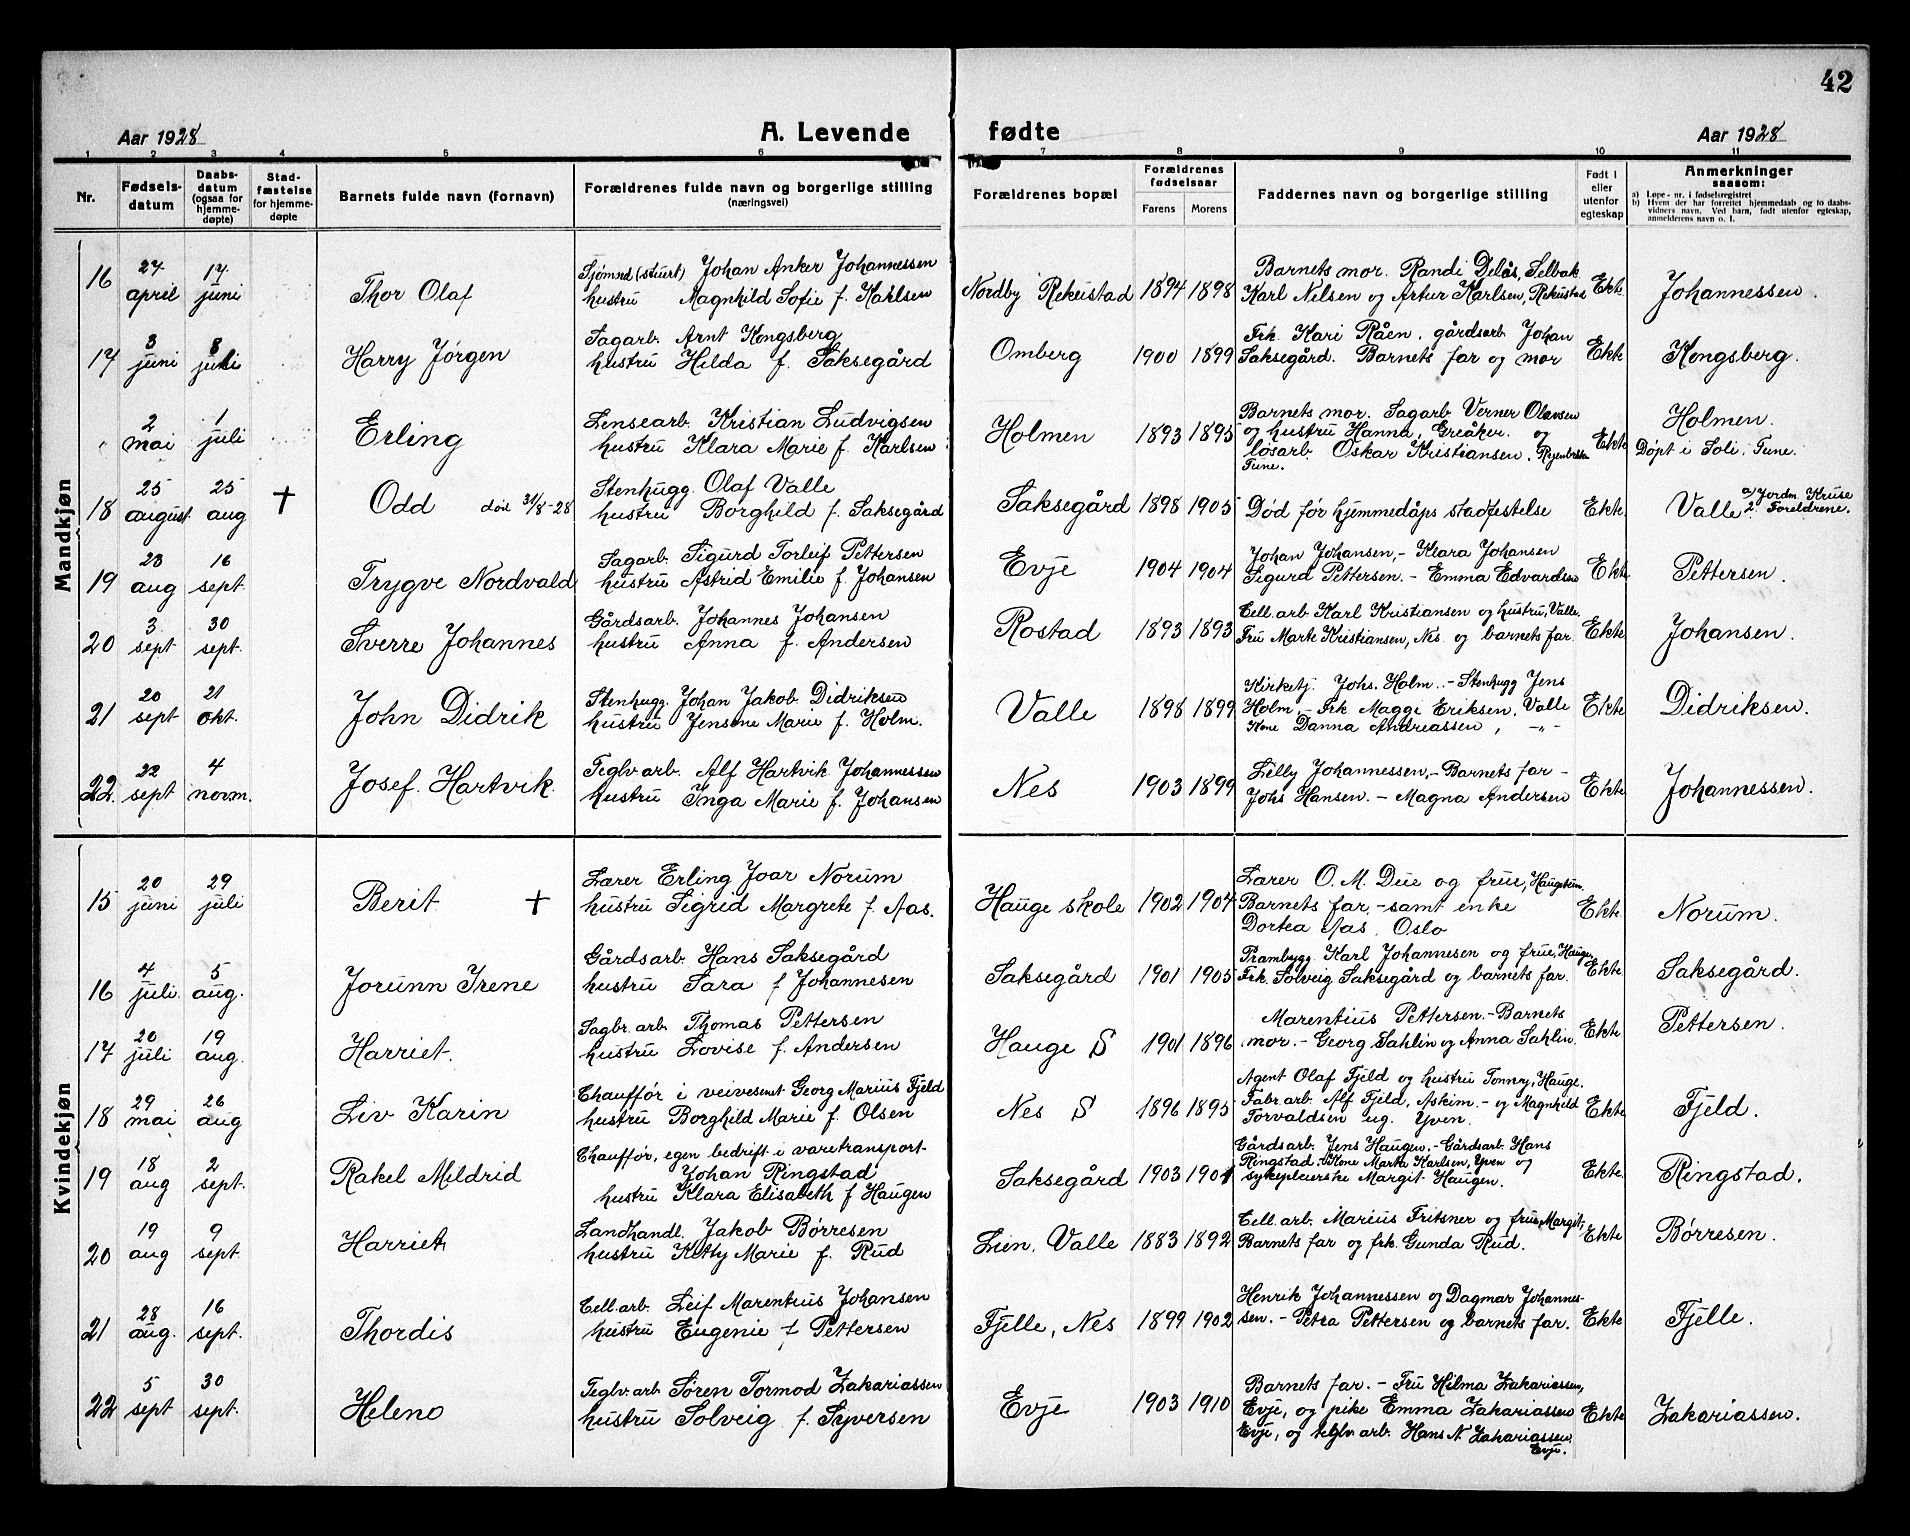 42
Aar 1928
A. Levende fødte
Aar 1928
1 2 3 4 5 6 7 8 9 10 11
Nr.
Fødsels-
datum
Daabs-
datum
(ogsaa for
hjemme-
døpte)
Stad-
fæstelse
for hjemme-
døpte
Barnets fulde navn (fornavn)
Forældrenes fulde navn og borgerlige stilling
(næringsvei)
Forældrenes bopæl
Forældrenes
fødselsaar
Farens Morens
Faddernes navn og borgerlige stilling
Født i
eller
utenfor
egteskap
Anmerkninger
saasom:
a) Løpe-nr. i fødselsregistret
b) Hvem der har forrettet hjemmedaab og to daabs-
vidners navn. Ved barn, født utenfor egteskap,
anmelderens navn o. l.
Mandkjøn
16
27
april
17
juni
Thor Olaf
Sjømnd (stuert) Johan Anker Johannessen
hustru Magnhild Sofie f. Karlsen
Nordby Rekustad
1894 1898
Barnets mor. Randi Delås, Selbak
Karl Nilsen og Artur Karlsen, Rekustad
Ekte
Johannessen.
17
3
juni
8
juli
Harry Jörgen
Sagarb. Arnt Kongsberg
hustru Hilda f. Saksegård
Omberg
1900 1899
Frk. Kari Råen. gårdsarb. Johan
Saksegård. Barnets far og mor
Ekte
Kongsberg.
2
mai
1
juli
Erling
Lensearb. Kristian Ludvigsen
hustru Klara Marie f. Karlsen
Holmen
1893 1895
Barnets mor. Sagarb Verner Olavsen
og hustru Hanna, Greåker. og
løsarb. Oskar Kristiansen.
Tune.
Ekte
Holmen.
Døpt i Soli, Tune.
18
25
august
25
aug
†
Odd död 31/8-28
Stenhugg. Olaf Valle
hustru Borghild f. Saksegård
Saksegård
1898 1905
Död för hjemmedåps stadfestelse
Ekte
Valle a) Jordm. Kruse
2 Foreldrene.
19
23
aug
16
sept.
Trygve Nordvald
Sagarb. Sigurd Torleif Pettersen
hustru Astrid Emilie f. Johansen
Evje
1904 1904
Johan Johansen, - Klara Johansen
Sigurd Pettersen. - Emma Edvardsen
Ekte
Pettersen.
20
3
sept
30
sept.
Sverre Johannes
Gårdsarb. Johannes Johansen
hustru Anna f. Andersen
Rostad
1893 1893
Cell.arb Karl Kristiansen og hustru, Valle.
Fru Marte Kristiansen, Nes. og barnets far.
Ekte
Johansen.
21
20
sept
21
okt.
John Didrik
Stenhugg. Johan Jakob Didriksen
hustru Jensine Marie f. Holm.
Valle
1898 1899
Kirketj. Johs. Holm. - Stenhugg Jens
Holm, - Frk Maggi Eriksen. Valle
Kone Danna Andreassen, -„-
Ekte
Didriksen.
22.
22
sept
4
novm.
Josef. Hartvik.
Teglv.arb. Alf Hartvik Johannessen
hustru Inga Marie f. Johansen
Nes
1903 1899
Lilly Johannessen, - Barnets far -
Johs Hansen. - Magna Andersen
Ekte
Johannessen.
Kvindekjøn
15
20
juni
29
juli
Berit †
Lærer Erling Joar Norum
hustru Sigrid Margrete f. Aas.
Hauge skole
1902 1904
Lærer O. M. Due og frue,
Barnets far, - samt enke
Dortea Aas, Oslo
Ekte
Norum.
16
4
juli.
5
aug.
Jorunn Irene
Gårdsarb. Hans Saksegård
hustru Sara f Johannesen
Saksegård
1901 1905
Prambygg. Karl Johannesen og frue, Hauge,
Frk. Solveig Saksegård og barnets far.
Ekte
Saksegård.
17
20
juli
19
aug.
Harriet.
Sagbr.arb Thomas Pettersen
hustru Lovise f. Andersen
Hauge S
1901 1896
Marentius Pettersen. - Barnets
mor. - Georg Sahlin og Anna Sahlin
Ekte
Pettersen.
18
29
mai
26
aug
Liv Karin
Chaufför i veivesent Georg Marius Fjeld
hustru Borghild Marie f Olsen
Nes S
1896 1895
Agent Olaf Fjeld og hustru Tonny, Hauge.
Fabr.arb Alf Fjeld, Askim. - og Magnhild
Torvaldsen ug. Yven.
Ekte
Fjeld.
19
18
aug
2
sept.
Rakel Mildrid
Chaufför, egen bedrift i varetransport
Johan Ringstad
hustru Klara Elisabeth f Haugen
Saksegård
1903 1901
Gårdsarb. Jens Haugen. - Gårdsarb. Hans
Ringstad, Kone Marta Karlsen, Yven og
sykepleierske Margit Haugen.
Ekte.
Ringstad.
20
19
aug
9
sept.
Harriet
Landhandl. Jakob Börresen
hustru Ketty Marie f. Rud
Lien, Valle
1883 1892
Cell.arb. Marius Fritsner og frue, Margit,
Barnets far og frk. Gunda Rud.
Ekte
Börresen.
21
28
aug.
16
sept.
Thordis
Cell.arb. Leif Marentius Johansen
hustru Eugenie f Pettersen
Fjelle, Nes
1899 1902
Henrik Johannessen og Dagmar Johannes-
sen. - Petra Pettersen og barnets far.
Ekte
Fjelle.
22
5
sept
30
sept.
Helene
Teglv.arb Søren Tormod Zakariassen
hustru Solveig f. Syversen
Evje
1903 1910
Barnets far. - Fru Hilma Zakariassen,
Evje, og pike Emma Zakariassen
Evje, og teglv.arb. Hans N. Zakariassen.
Evje.
Ekte
Zakariassen.